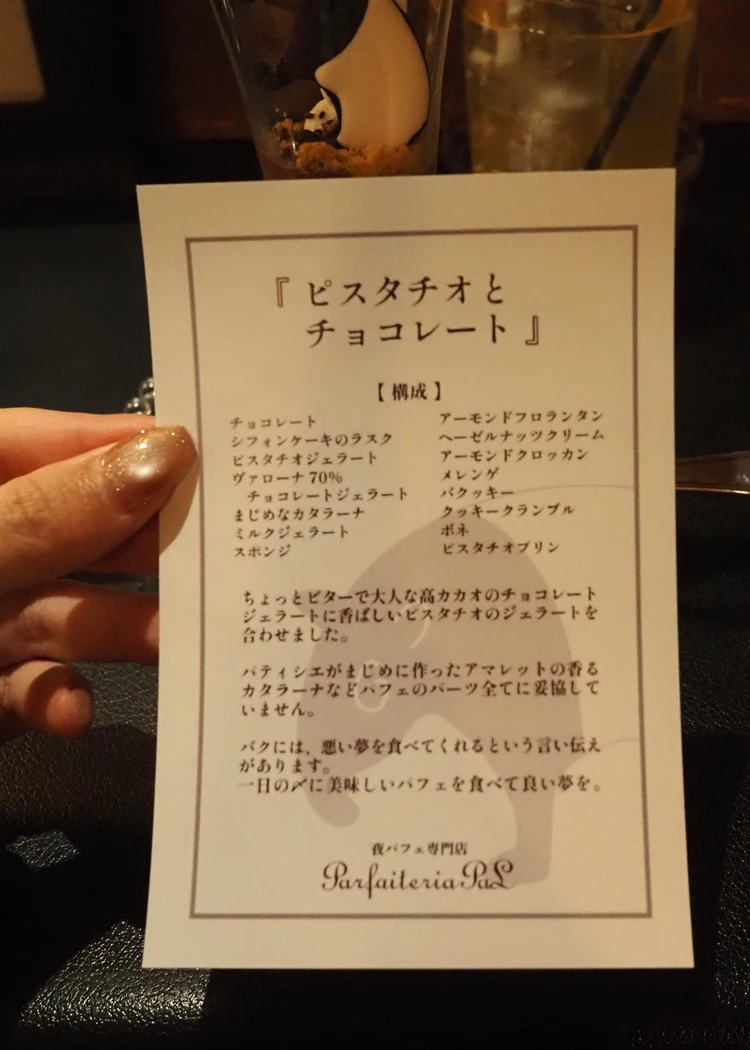 『ピスタチオと
チョコレート』
【構成】
チョコレート
シフォンケーキのラスク
ピスタチオジェラート
ヴァローナ70%
チョコレートジェラート
まじめなカタラーナ
ミルクジェラート
スポンジ
アーモンドフロランタン
ヘーゼルナッツクリーム
アーモンドクロッカン
メレンゲ
バクッキー
クッキークランブル
ボネ
ピスタチオプリン
ちょっとビターで大人な高カカオのチョコレート
ジェラートに香ばしいピスタチオのジェラートを
合わせました。
パティシエがまじめに作ったアマレットの香る
カタラーナなどパフェのパーツ全てに妥協して
いません。
バクには、悪い夢を食べてくれるという言い伝え
があります。
一日の〆に美味しいパフェを食べて良い夢を。
夜パフェ専門店
Parfaiteria PaL